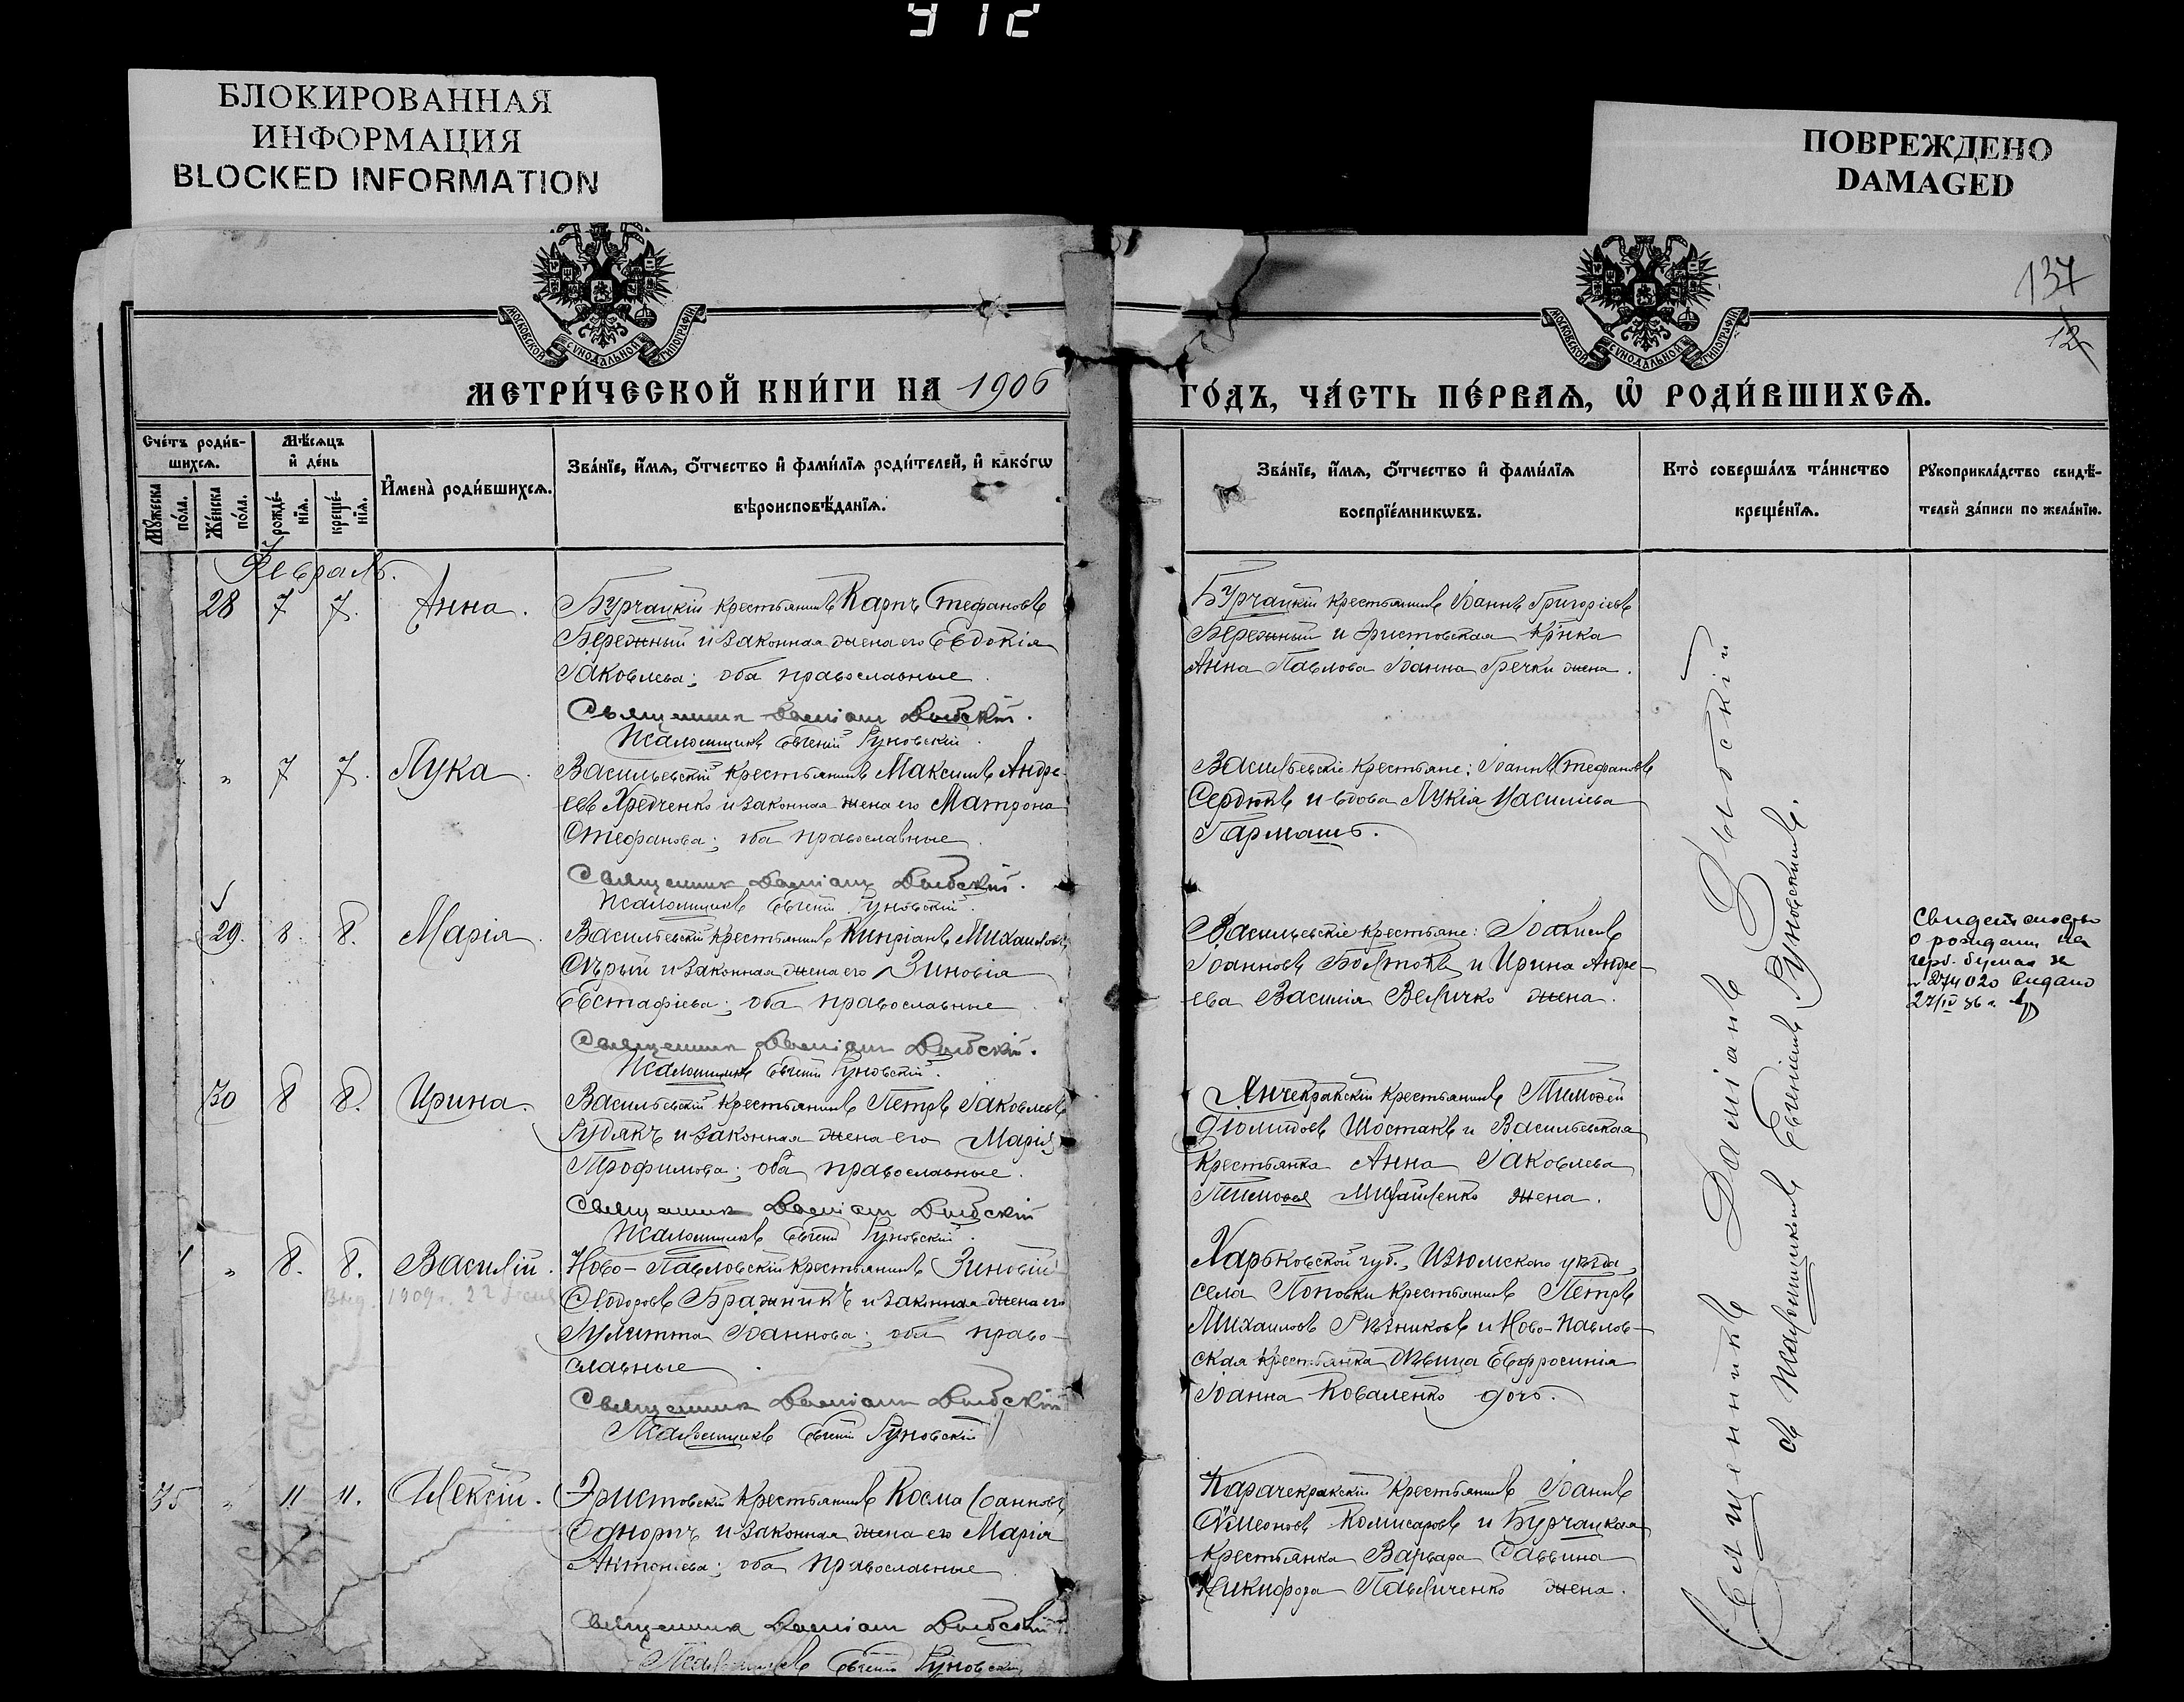 912
БЛОКИРОВАННАЯ
ИНФОРМАЦИЯ
BLOCKED INFORMATION
ПОВРЕЖДЕНО
DAMAGED
137
12
МОСКОВСКОЙ СѴНОДАЛЬНОЙ ТИПОГРАФІИ
МОСКОВСКОЙ СѴНОДАЛЬНОЙ ТИПОГРАФІИ
МЕТРИ́ЧЕСКОЙ КНИ́ГИ НА 1906
ГО́ДЪ, ЧА́СТЬ ПЕ́РВАѦ, Ѡ҆ РОДИ́ВШИХСѦ.
Сче́тъ роди́в-
шихсѧ.
Мꙋ́жеска по́ла.
Же́нска по́ла.
Мѣ́сѧцъ
и҆ де́нь
рожде́-
нїѧ.
креще́-
нїѧ.
И҆мена̀ роди́вшихсѧ.
Зва́нїе, и҆́мѧ, ѻ҆́тчество и҆ фами́лїѧ роди́телей, и҆ како́гѡ
вѣроисповѣ́данїѧ.
Зва́нїе, и҆́мѧ, ѻ҆́тчество и҆ фами́лїѧ
воспрїе́мникѡвъ.
Кто̀ соверша́лъ та́инство
креще́нїѧ.
Рꙋкоприкла́дство свидѣ́-
телей за́писи по жела́нїю.
Февраль.
28 7 7. Анна.
Бурчацкій крестьянинъ Карпъ Стефановъ
Бережный и законная жена его Евдокія
Іаковлева; оба православные.
Священникъ Даміанъ Дыбскій.
Псаломщикъ Евгеній Руновскій.
Бурчацкій крестьянинъ Іоаннъ Григоріевъ
Бережный и Эристовская кр‑нка
Анна Павлова Іоанна Гречки жена.
" 7 7. Лука.
Васильевскій крестьянинъ Максимъ Андре-
евъ Хредченко и законная жена его Матрона
Стефанова; оба православные.
Священникъ Даміанъ Дыбскій.
Псаломщикъ Евгеній Руновскій.
Васильевскіе крестьяне: Іоаннъ Стефановъ
Сердюкъ и вдова Лукія Василіева
Гармашъ.
29. 8 8. Марія.
Васильевскій крестьянинъ Кипріанъ Михаиловъ
Сѣрый и законная жена его Зиновія
Евстафіева; оба православные.
Священникъ Даміанъ Дыбскій.
Псаломщикъ Евгеній Руновскій.
Васильевскіе крестьяне: Іоакимъ
Іоанновъ и Ирина Андре-
ева Василія Величко жена.
о рождении на
герб. бумаге за
№ 274020 выдано
27/IV 36 г.
30 8 8. Ирина.
Васильевскій крестьянинъ Петръ Іаковлевъ
Рудякъ и законная жена его Марія
Трофимова; оба православные.
Священникъ Даміанъ Дыбскій
Псаломщикъ Евгеній Руновскій.
Янчекракскій крестьянинъ Тимоѳей
Шостакъ и Васильевская
крестьянка Анна Іаковлева
Тимоѳея Михайленко жена.
" 8. 8. Василій.
1909 г. 22
Ново-Павловскій крестьянинъ Зиновій
Ѳеодоровъ Бражникъ и законная жена его
Іулитта Іоаннова; оба право-
славные.
Священникъ Даміанъ Дыбскій
Псаломщикъ Евгеній Руновскій
Харьковской губ., Изюмскаго уѣзда,
села Поповки крестьянинъ Петръ
Михаиловъ Рѣзниковъ и Ново-Павлов-
ская крестьянка дѣвица Евфросинія
Іоанна Коваленко дочь.
35 " 11 11. Алексій.
Эристовскій крестьянинъ Косма Іоанновъ
Однорогъ и законная жена его Марія
Антоніева; оба православные.
Священникъ Даміанъ Дыбскій
Псаломщикъ Евгеній Руновскій
Карачекракскій крестьянинъ Іоаннъ
Сѵмеоновъ Комисаровъ и Бурчацкая
крестьянка Варвара Саввина
Никифора Павличенко жена.
Священникъ Даміанъ Дыбскій
съ Псаломщикомъ Евгеніемъ Руновскимъ.